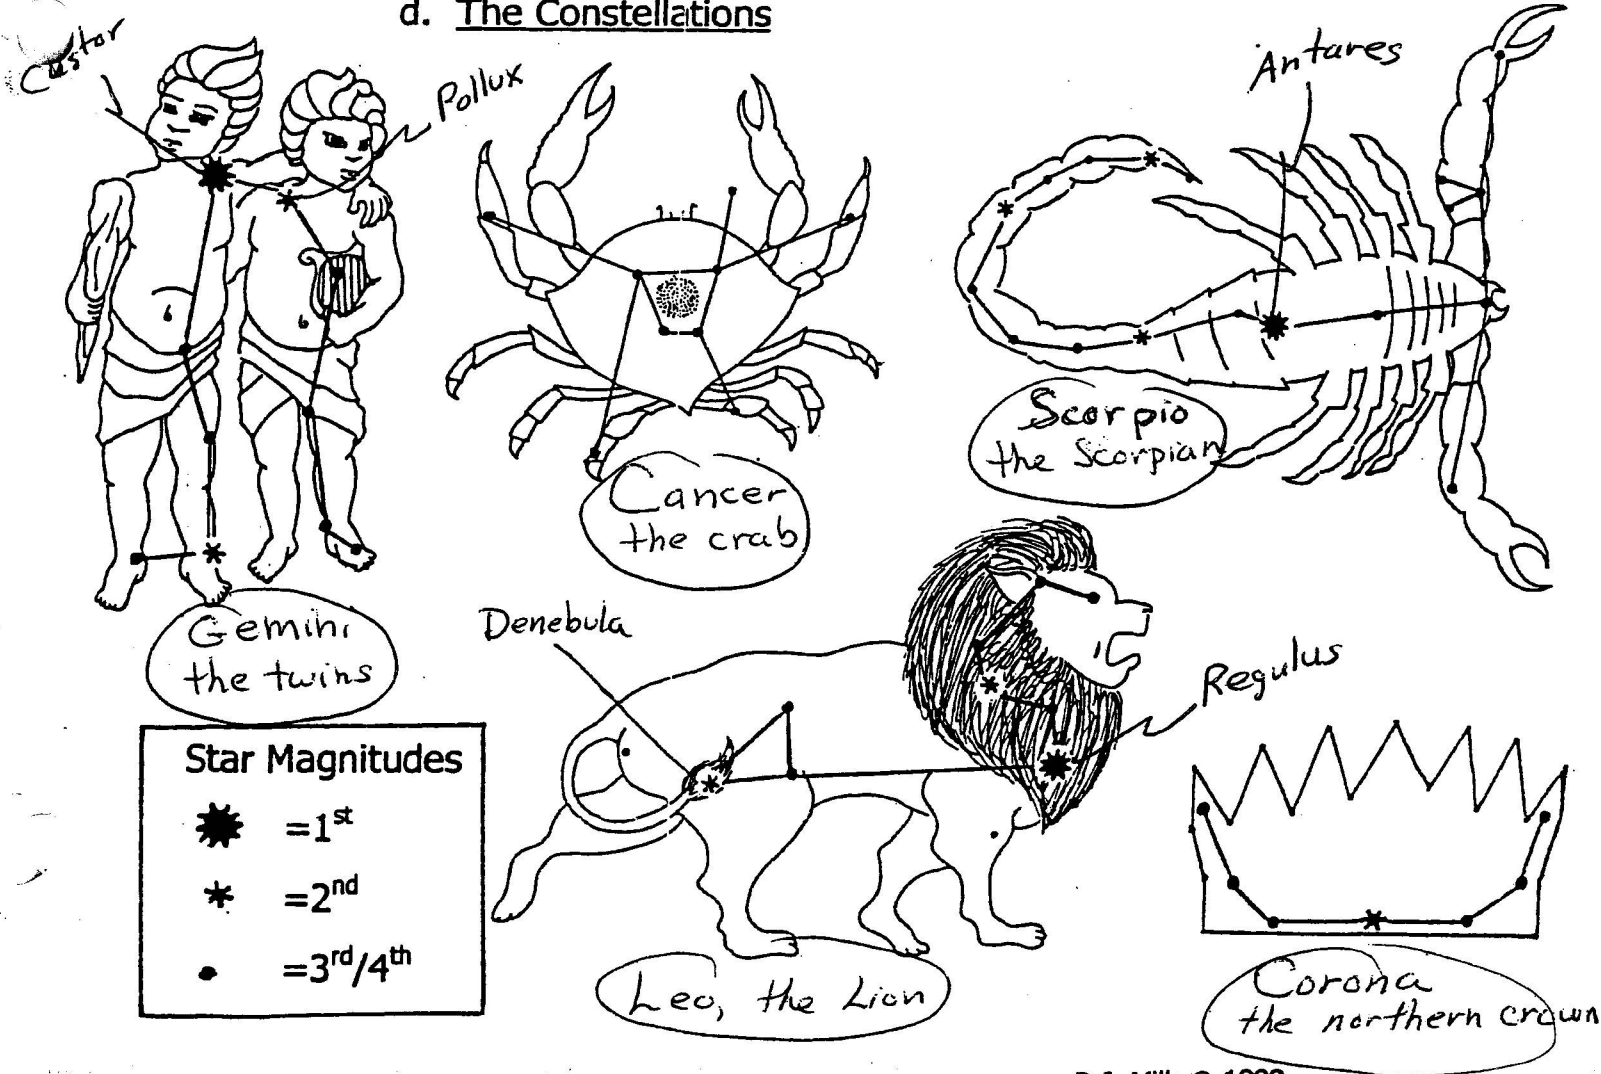 d. The Constellations
Castor
Pollux
Antares
Scorpio
the Scorpian
Cancer
the crab
Gemini
the twins
Denebula
Regulus
Star Magnitudes
=1st
=2nd
=3rd/4th
Leo, the Lion
Corona
the northern crown